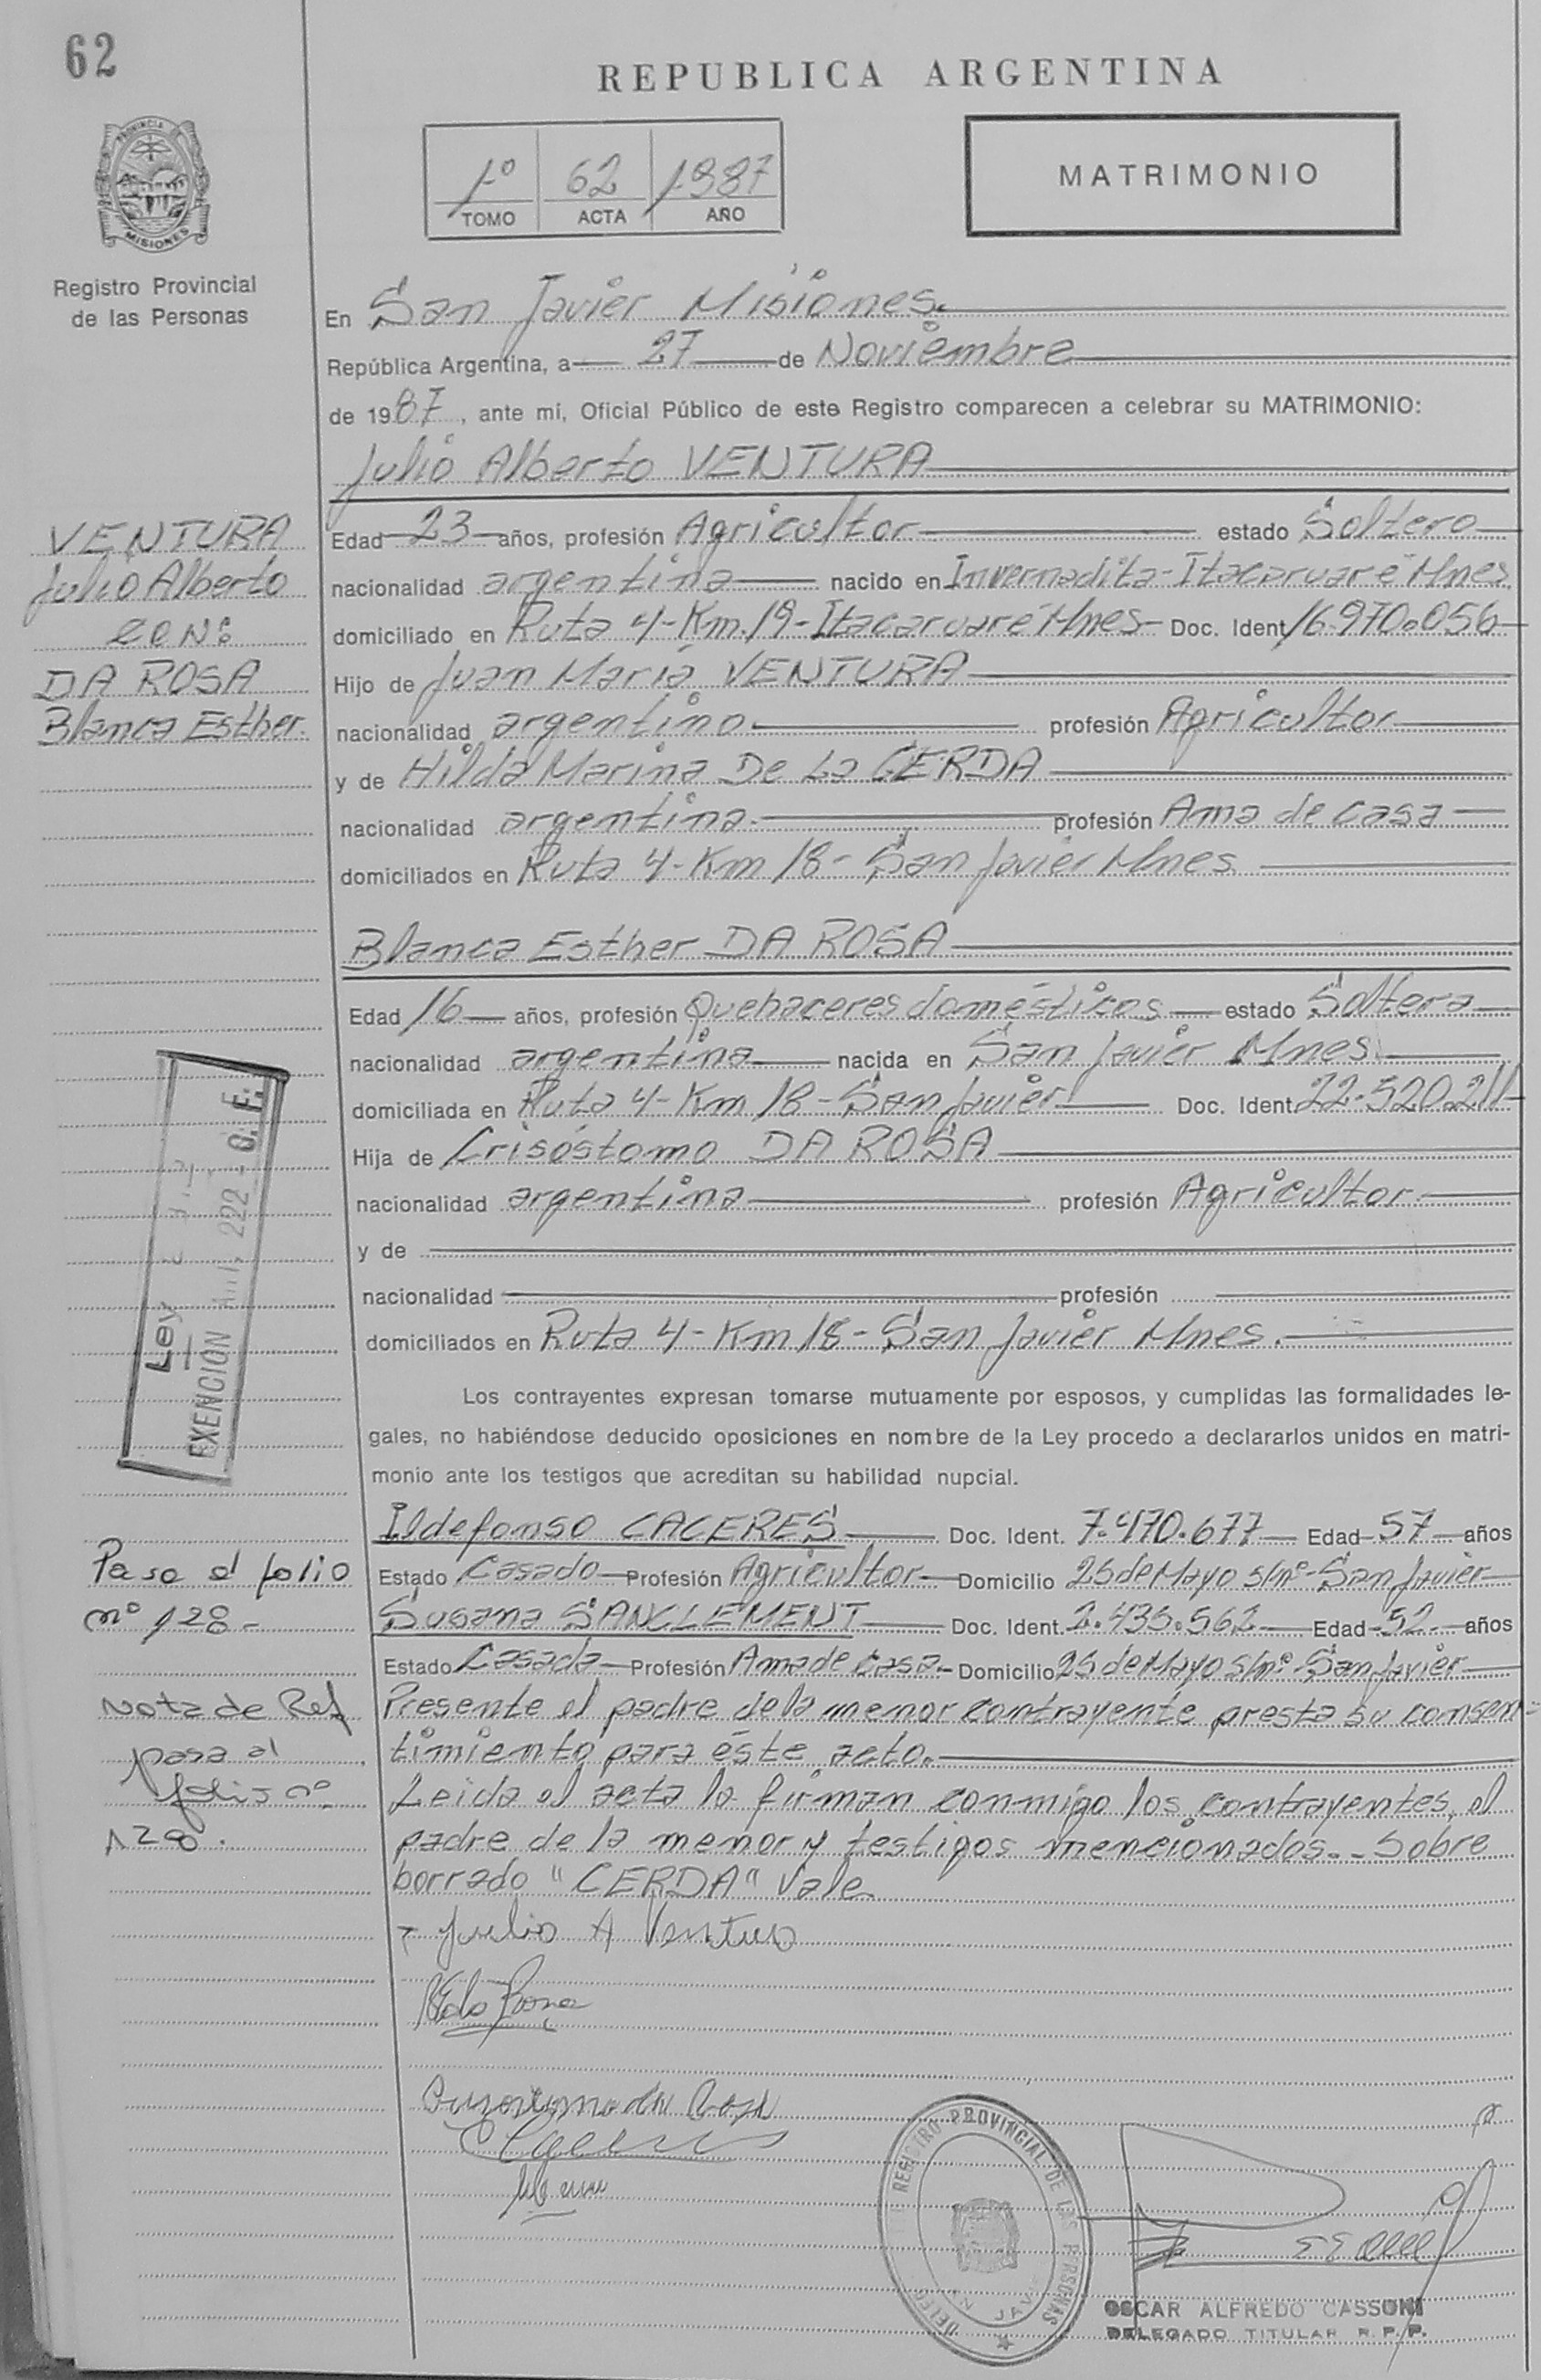 62
REPUBLICA ARGENTINA
PROVINCIA
MISIONES
Registro Provincial
de las Personas
1º 62 1987
TOMO ACTA AÑO
MATRIMONIO
En San Javier Misiones.
República Argentina, a 27 de Noviembre
de 1987, ante mí, Oficial Público de este Registro comparecen a celebrar su MATRIMONIO:
Julio Alberto VENTURA
VENTURA
Julio Alberto
con
DA ROSA
Blanca Esther.
Edad 23 años, profesión Agricultor estado Soltero
nacionalidad argentina nacido en Invernadita-Itacaruaré Mnes
domiciliado en Ruta 4-Km.19-Itacaruaré Mnes- Doc. Ident 16.970.056
Hijo de Juan María VENTURA
nacionalidad argentino profesión Agricultor
y de Hilda Marina De La CERDA
nacionalidad argentina. profesión Ama de casa
domiciliados en Ruta 4-Km 18-San Javier Mnes.
Blanca Esther DA ROSA
Edad 16 años, profesión Quehaceres domésticos estado Soltera
nacionalidad argentina nacida en San Javier Mnes.
domiciliada en Ruta 4-Km 18-San Javier Doc. Ident. 22.520.211
Hija de Crisóstomo DA ROSA
nacionalidad argentina profesión Agricultor
y de
nacionalidad profesión
domiciliados en Ruta 4-Km 18-San Javier Mnes.
Ley
EXENCION 222 - O. F.
Los contrayentes expresan tomarse mutuamente por esposos, y cumplidas las formalidades le-
gales, no habiéndose deducido oposiciones en nombre de la Ley procedo a declararlos unidos en matri-
monio ante los testigos que acreditan su habilidad nupcial.
Ildefonso CACERES Doc. Ident. 7.470.677 Edad 57 años
Estado Casado Profesión Agricultor Domicilio 25 de Mayo s/nº-San Javier
Susana SANCLEMENT Doc. Ident. 2.435.562 Edad 52 años
Estado Casada Profesión Ama de casa.- Domicilio 25 de Mayo s/nº-San Javier
Pasa al folio
nº 128-
Nota de Ref
pasa al
folio nº
128.
Presente el padre de la menor contrayente presta su consen-
timiento para éste acto.
Leida el acta la firman conmigo los contrayentes, el
padre de la menor y testigos mencionados.- Sobre
borrado "CERDA" Vale.
Julio A Ventura
REGISTRO PROVINCIAL DE LAS PERSONAS
DELEG. JAVIER
OSCAR ALFREDO CASSONI
DELEGADO TITULAR R. P. P.